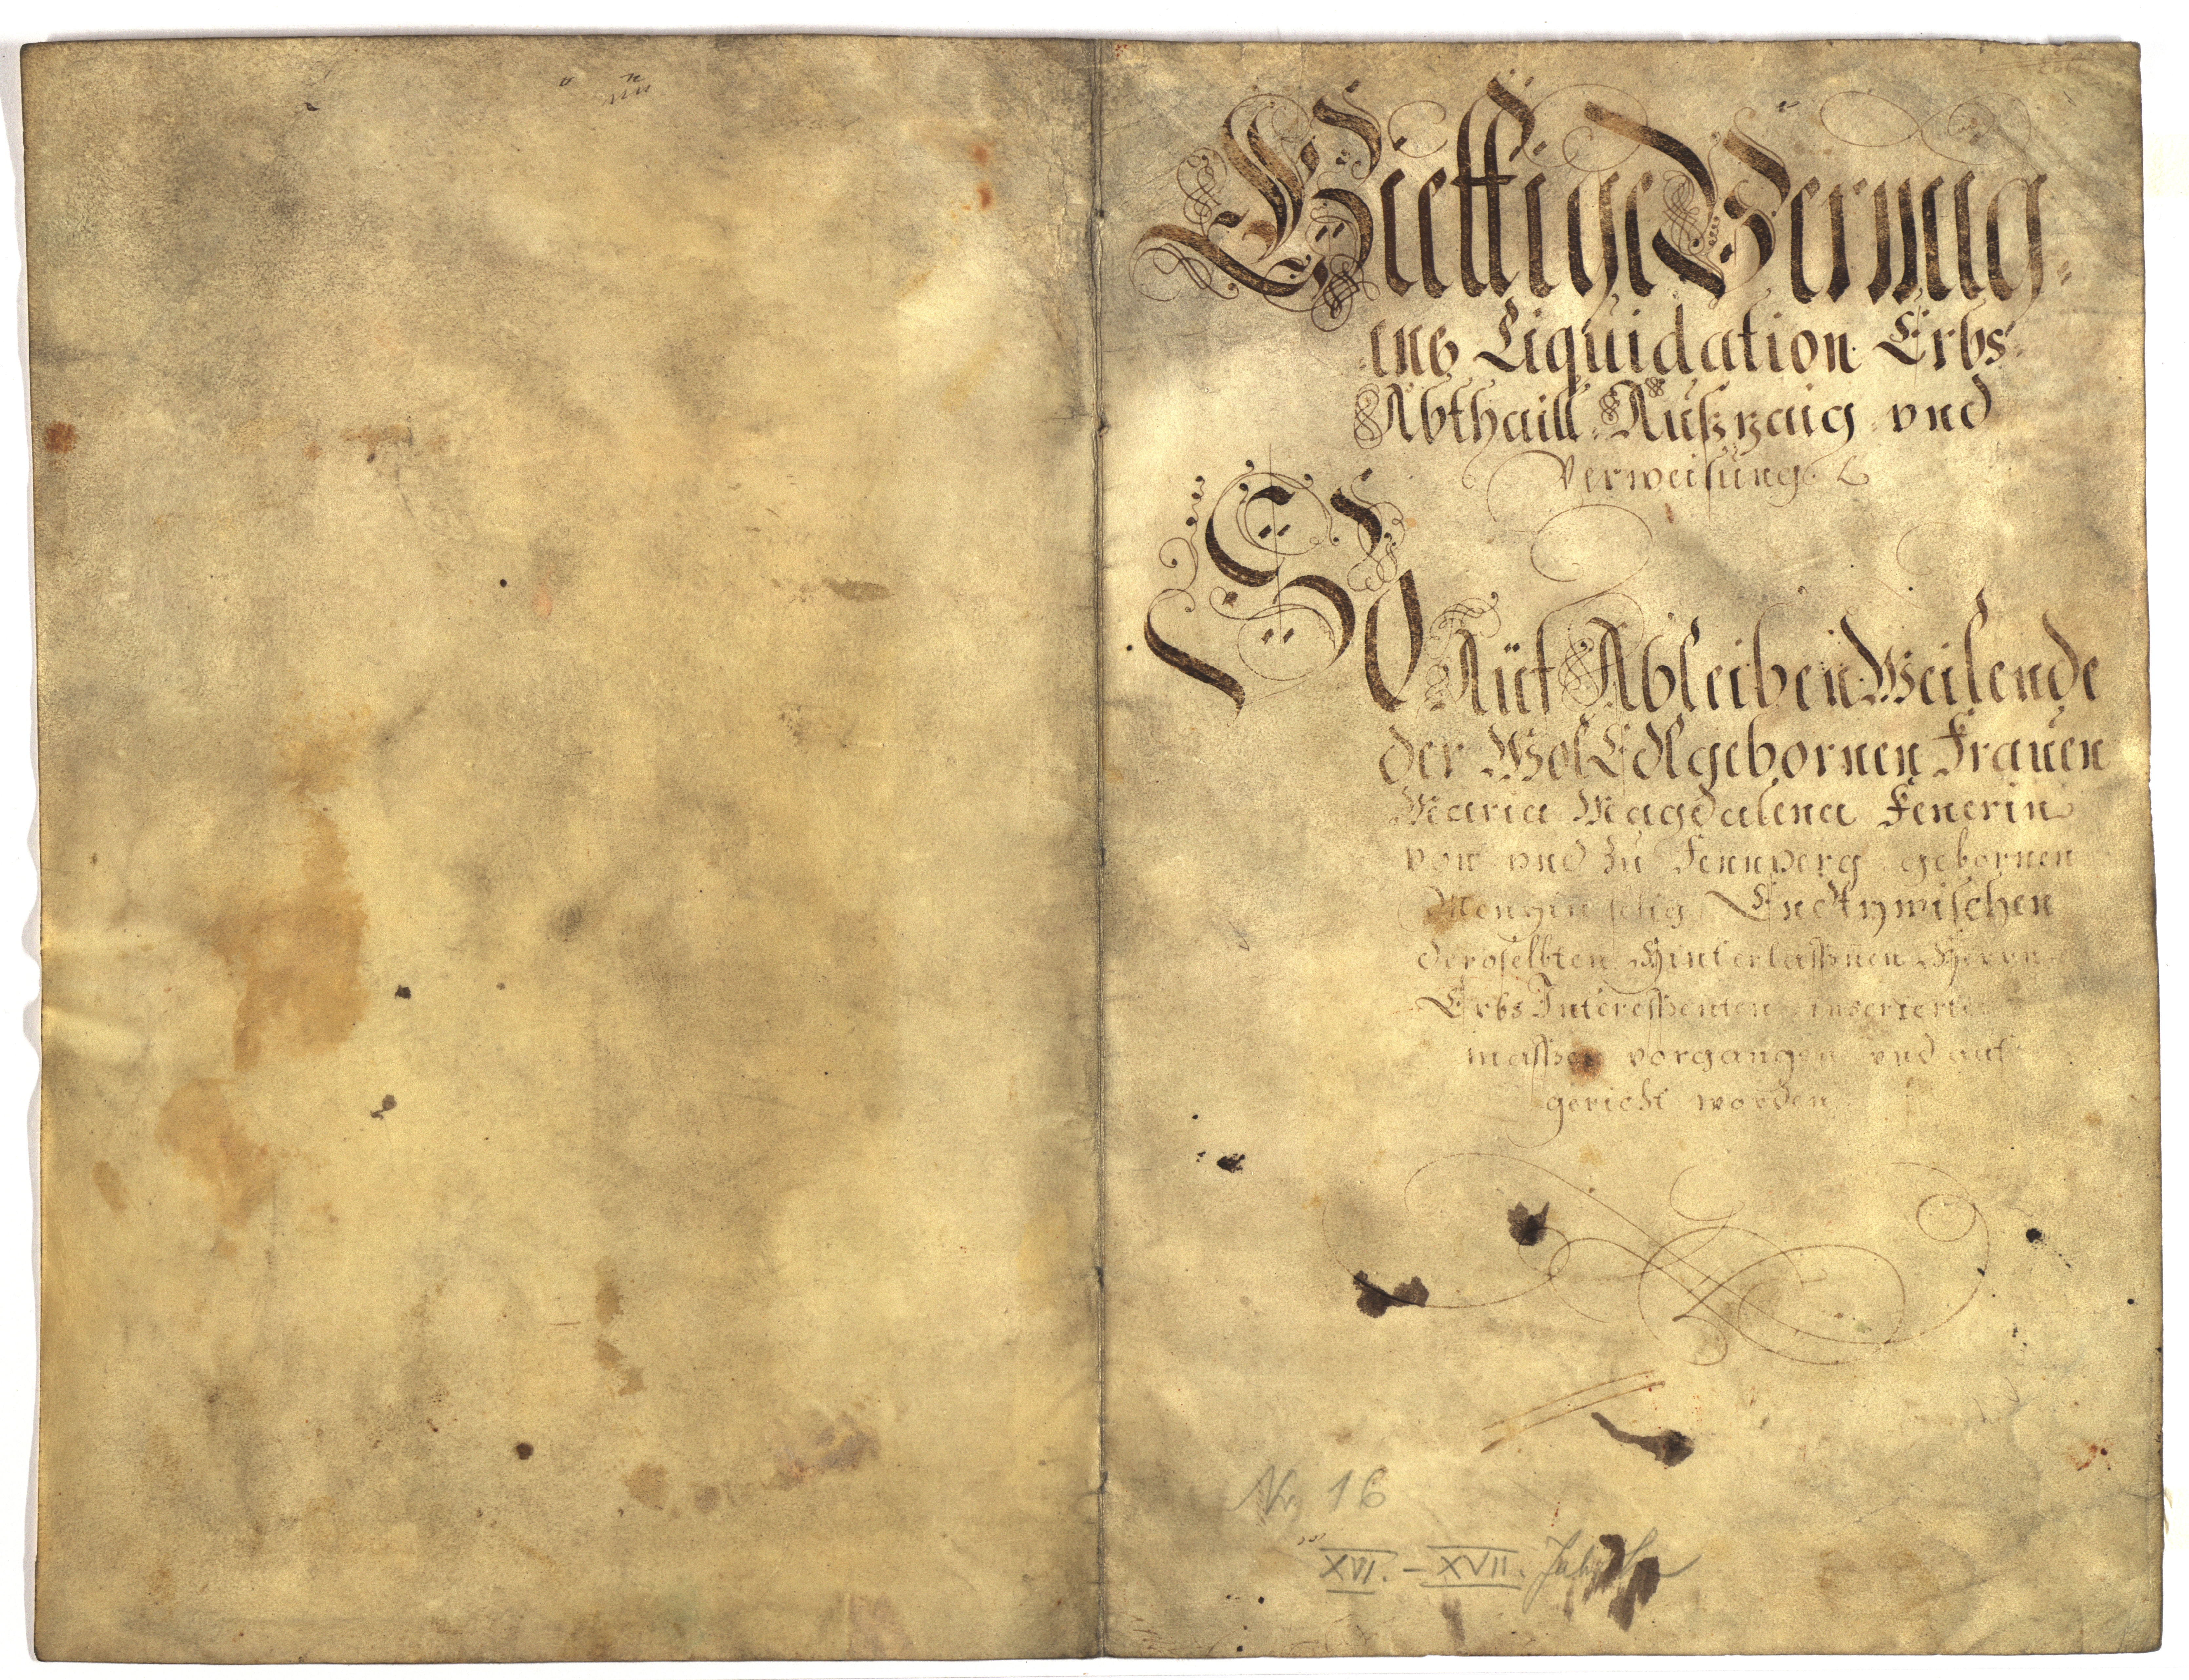 Giettige Vermig=
ens Liquidation Erbs
Abthaill Außzaig vnd
Verweisung
So Auf Ableiben Weilende
der Wol Edlgebornen Frauen
Maria Magdalena Fenerin
von vnd zu Fennperg gebornen
selig Entzwischen
deroselbten Hinterlaßnen Herrn
Erbs Intereßenten inserierte
maßen vorgangen vnd auf
gericht worden
Nr. 16
XVI. - XVII. Jahrh